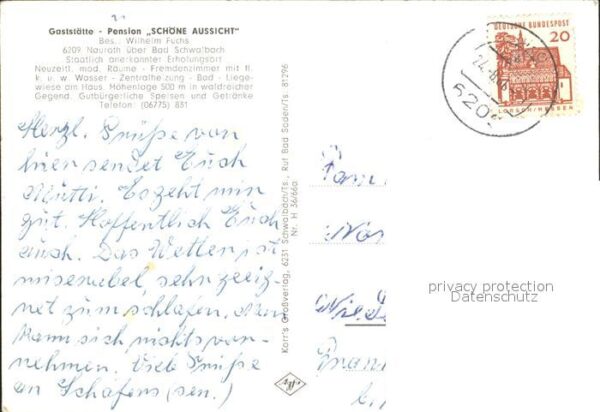 Gaststätte - Pension „SCHÖNE AUSSICHT"
Bes.: Wilhelm Fuchs
6209 Naurath über Bad Schwalbach
Staatlich anerkannter Erholungsort
Neuzeitl. möd. Räume - Fremdenzimmer mit fl.
k. u. w. Wasser - Zentralheizung - Bad - Liege-
wiese am Haus. Höhenlage 500 m in waldreicher
Gegend. Gutbürgerliche Speisen und Getränke
Telefon: (06775) 831
Herzl. Grüße von
hier sendet Euch
Mutti. Es geht mir
gut. Hoffentlich Euch
auch. Das Wetter ist
miserabel, sehr geeig-
net zum schlafen. Man
kann sich nichts vor-
nehmen. Viele Grüße
an Schäfers (sen.)
Korr's Großverlag, 6231 Schwalbach/Ts., Ruf Bad Soden/Ts. 81296
Nr. H 36/66a
Agfa
DEUTSCHE BUNDESPOST
20
LORSCH/HESSEN
620
Fam
Nor
Nied
privacy protection
Datenschutz